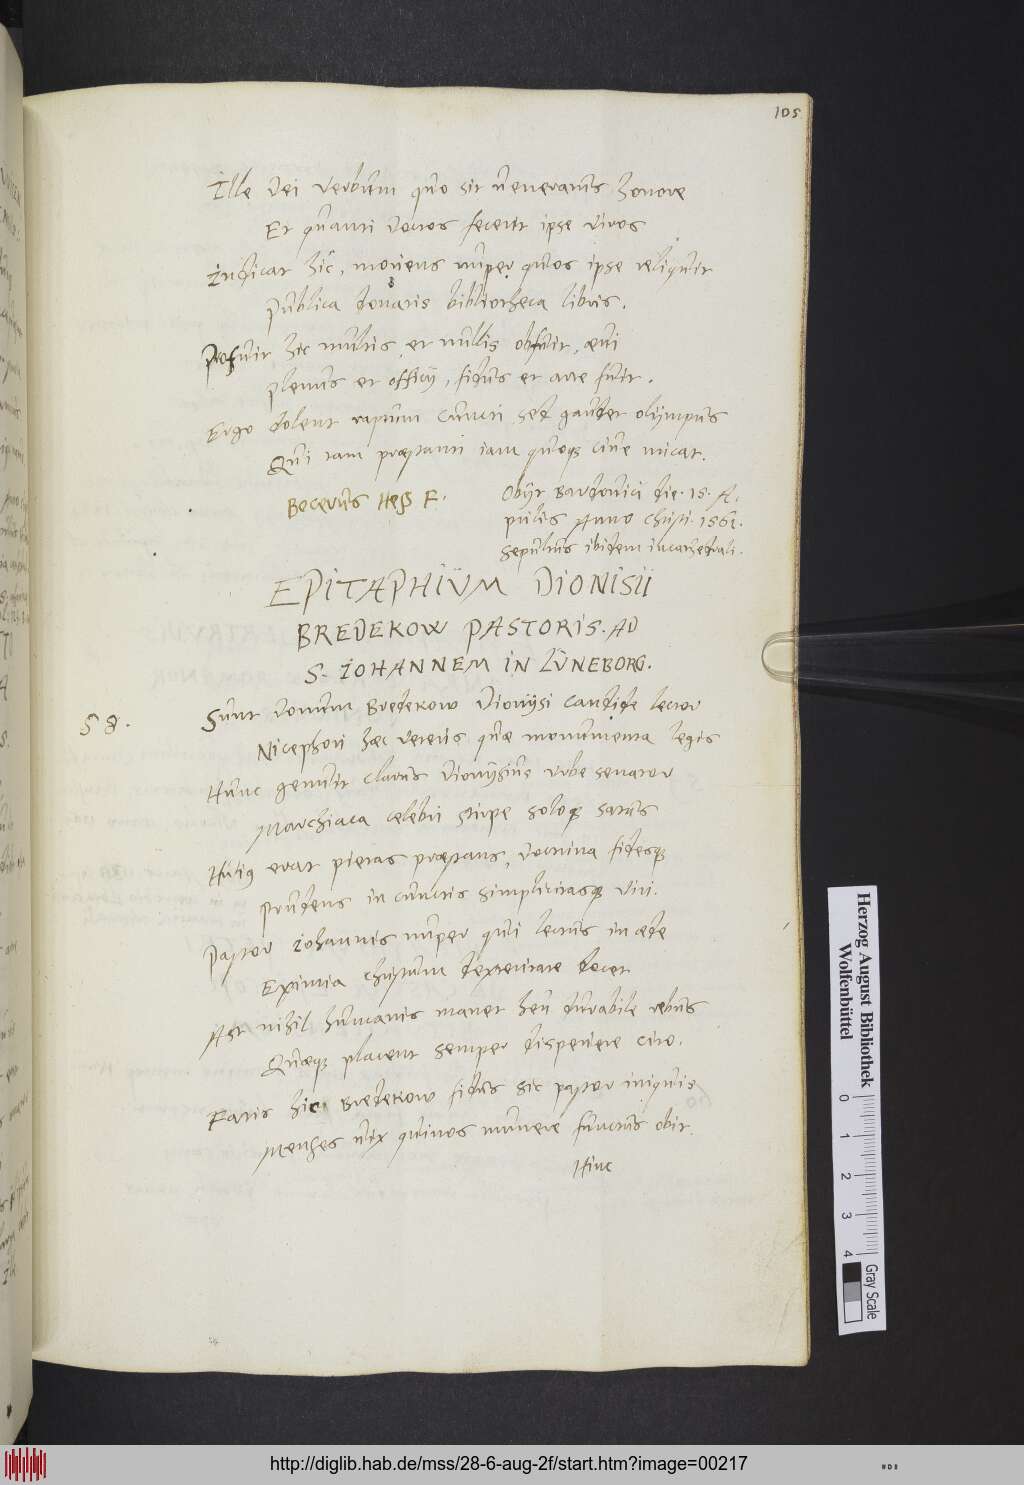 105
Ille Dei verbum quo sit veneratus honore
Et quanti doctos fecerit ipse viros
Indicat hic, moriens nuper quos ipse reliquit
Publica donatis bibliotheca libris.
Profuit hic multis et nullis obfuit, aevi
plenus et officij, fidus et arte fuit.
Ergo dolent raptum cuncti sed gaudet olympus
Qui tam praestanti iam quoque cive micat.
Bocerus F.
Obijt Bardovici die. 15. A.
prilis Anno Christi. 1561.
sepultus ibidem in cathedrali.
EPITAPHIUM DIONISII
BREDEKOW PASTORIS. AD
S. IOHANNEM IN LÜNEBORG.
58.
Sunt Bredekow Dionysi candide lector
Nicephori haec veteris quae monumenta legis
Hunc genuit clarus Dionysius urbe senator
Marchiaca celebri stirpe soloque satus
Huius erat pietas praestans, doctrina fidesque
prudens in cunctis simplicitasque viri.
Pastor Iohannis nuper qui lectus in aede
Eximia Christum dexteritate docet
Ast nihil humanis manet heu durabile rebus
Quaeque placent semper disperiere cito.
Fatis hic Bredekow fidus sic pastor iniquis
Menses vix quinos munere functus obit.
Hinc
Herzog August Bibliothek
Wolfenbüttel
0 1 2 3 4
Gray Scale
http://diglib.hab.de/mss/28-6-aug-2f/start.htm?image=00217